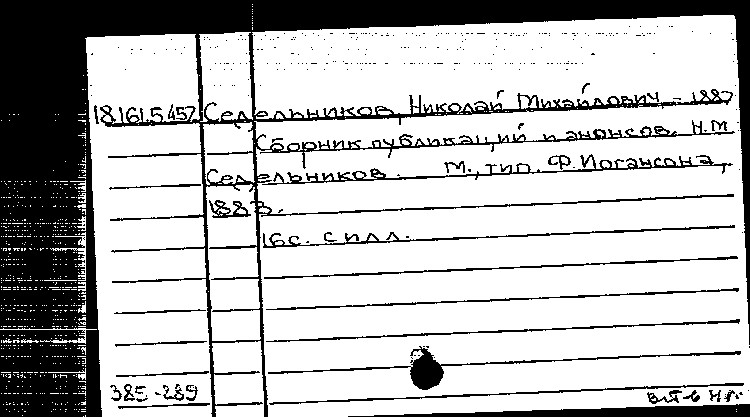 18.161.5.457 Седельников, Николай Михайлович, - 1887
Сборник публикаций и анонсов. Н.М.
Седельников. М., тип. Ф. Иогансона,
1883.
16с. с илл.
385-289